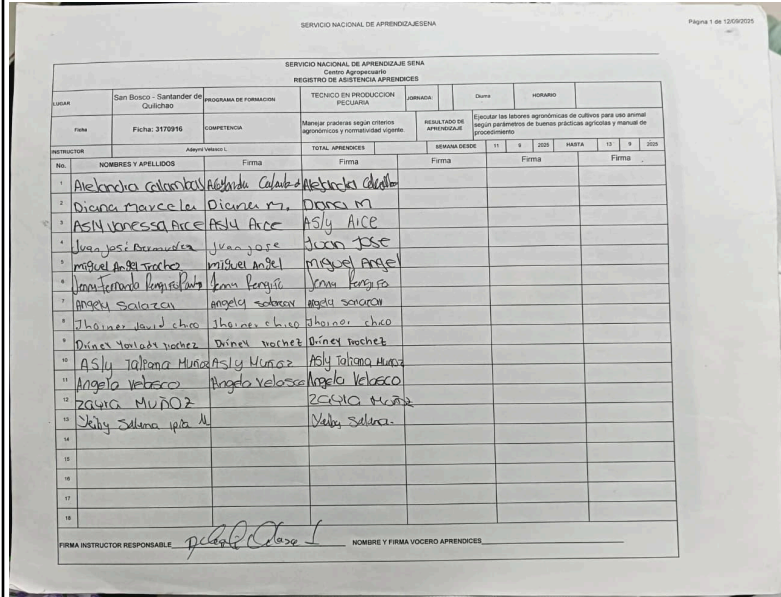 SERVICIO NACIONAL DE APRENDIZAJESENA
Página 1 de 12/09/2025
SERVICIO NACIONAL DE APRENDIZAJE SENA
Centro Agropecuario
REGISTRO DE ASISTENCIA APRENDICES
LUGAR San Bosco - Santander de Quilichao PROGRAMA DE FORMACION TECNICO EN PRODUCCION PECUARIA JORNADA: Diurna HORARIO
Ficha Ficha: 3170916 COMPETENCIA Manejar praderas según criterios agronómicos y normatividad vigente RESULTADO DE APRENDIZAJE Ejecutar las labores agronómicas de cultivos para uso animal según parámetros de buenas prácticas agrícolas y manual de procedimiento
INSTRUCTOR Adeymi Velasco I. TOTAL APRENDICES SEMANA DESDE 11 9 2025 HASTA 13 9 2025
No. NOMBRES Y APELLIDOS Firma Firma Firma Firma Firma
1 Alejandra
2 Diana Marcela Diana M. Diana M
3 ASly Vanessa Arce ASly Arce ASly Arce
4 Juan José Bermudez Juan Jose Juan Jose
5 miguel Angel Trochez miguel Angel Miguel Angel
6 Jenny Fernanda Jenny Rengifo Jenny Rengifo
7 Angely Salazar Angely salazar Angely salazar
8 Jhoiner david chico Jhoiner chico Jhoiner chico
9 Driney Yorlady trochez Driney trochez Driney trochez
10 ASly Tatiana Muñoz Asly Muñoz ASly Tatiana Muñoz
11 Angela Velasco Angela Velasco Angela Velasco
12 ZAYRA MUÑOZ ZAYRA MUÑOZ
13 Yeiby Salena ipia M Yeiby Salena.
14
15
16
17
18
FIRMA INSTRUCTOR RESPONSABLE NOMBRE Y FIRMA VOCERO APRENDICES